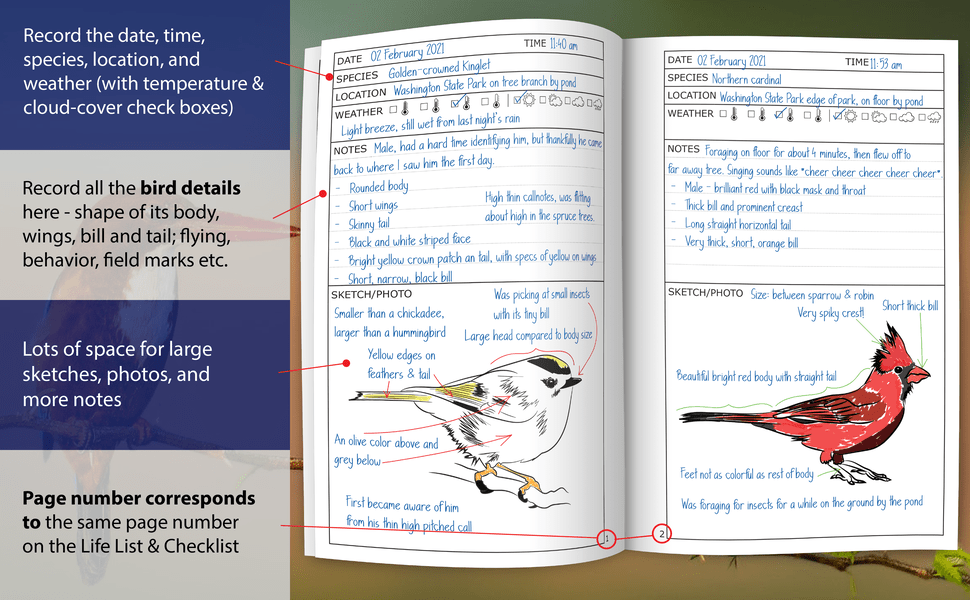 Record the date, time,
species, location, and
weather (with temperature &
cloud-cover check boxes)
Record all the bird details
here - shape of its body,
wings, bill and tail; flying,
behavior, field marks etc.
Lots of space for large
sketches, photos, and
more notes
Page number corresponds
to the same page number
on the Life List & Checklist
DATE 02 February 2021 TIME 11:40 am
SPECIES Golden-crowned Kinglet
LOCATION Washington State Park on tree branch by pond
WEATHER
Light breeze, still wet from last night's rain
NOTES Male, had a hard time identifying him, but thankfully he came
back to where I saw him the first day.
- Rounded body
- Short wings
- Skinny tail
High thin callnotes, was flitting
about high in the spruce trees.
- Black and white striped face
- Bright yellow crown patch an tail, with specs of yellow on wings
- Short, narrow, black bill
SKETCH/PHOTO
Smaller than a chickadee,
larger than a hummingbird
Was picking at small insects
with its tiny bill
Large head compared to body size
Yellow edges on
feathers & tail
An olive color above and
grey below
First became aware of him
from his thin high pitched call
1
DATE 02 February 2021 TIME 11:53 am
SPECIES Northern cardinal
LOCATION Washington State Park edge of park, on floor by pond
WEATHER
NOTES Foraging on floor for about 4 minutes, then flew off to
far away tree. Singing sounds like "cheer cheer cheer cheer cheer".
- Male - brilliant red with black mask and throat
- Thick bill and prominent creast
- Long straight horizontal tail
- Very thick, short, orange bill
SKETCH/PHOTO Size: between sparrow & robin
Very spiky crest!
Short thick bill
Beautiful bright red body with straight tail
Feet not as colorful as rest of body
Was foraging for insects for a while on the ground by the pond
2